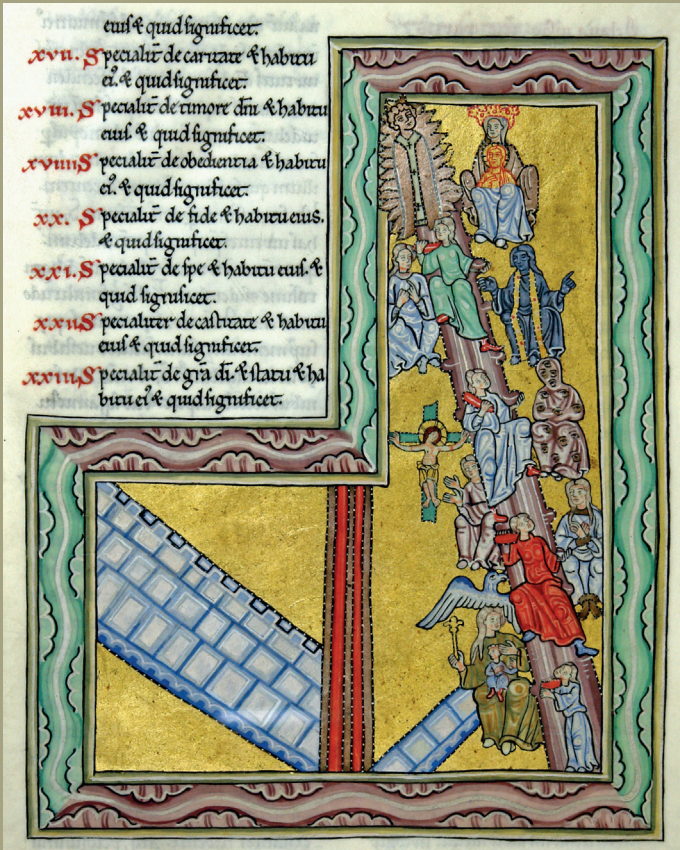 eiuſ ⁊ quid ſignificet.
xvii. Specialit̄ de caritate ⁊ habitu
eiꝰ. ⁊ quid ſignificet.
xviii. Specialit̄ de timore dn̄i ⁊ habitu
eiuſ. ⁊ quid ſignificet.
xviiii Specialit̄ de obedientia ⁊ habitu
eiꝰ. ⁊ quid ſignificet.
xx. Specialit̄ de fide ⁊ habitu eius.
⁊ quid ſignificet.
xxi. Specialit̄ de ſpe ⁊ habitu eiuſ. ⁊
quid ſignificet.
xxii Specialiter de caſtitate ⁊ habitu
eiuſ ⁊ quid ſignificet.
xxiii Specialit̄ de gr̄a dī. ⁊ ſtatu ⁊ ha
bitu eiꝰ ⁊ quid ſignificet.